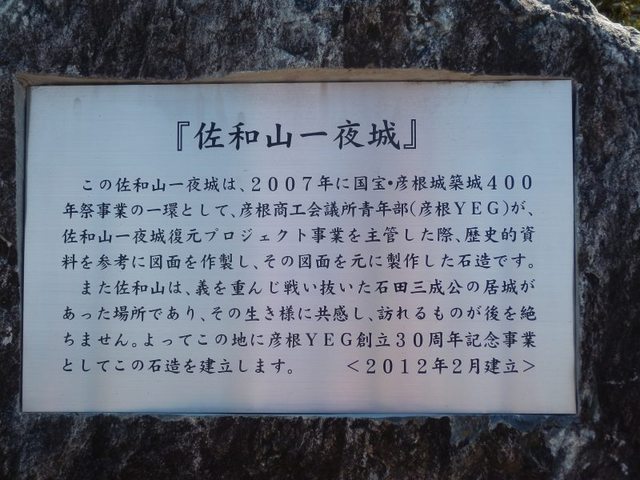 『佐和山一夜城』
この佐和山一夜城は、2007年に国宝・彦根城築城400
年祭事業の一環として、彦根商工会議所青年部(彦根YEG)が、
佐和山一夜城復元プロジェクト事業を主管した際、歴史的資
料を参考に図面を作製し、その図面を元に製作した石造です。
また佐和山は、義を重んじ戦い抜いた石田三成公の居城が
あった場所であり、その生き様に共感し、訪れるものが後を絶
ちません。よってこの地に彦根YEG創立30周年記念事業
としてこの石造を建立します。 <2012年2月建立>